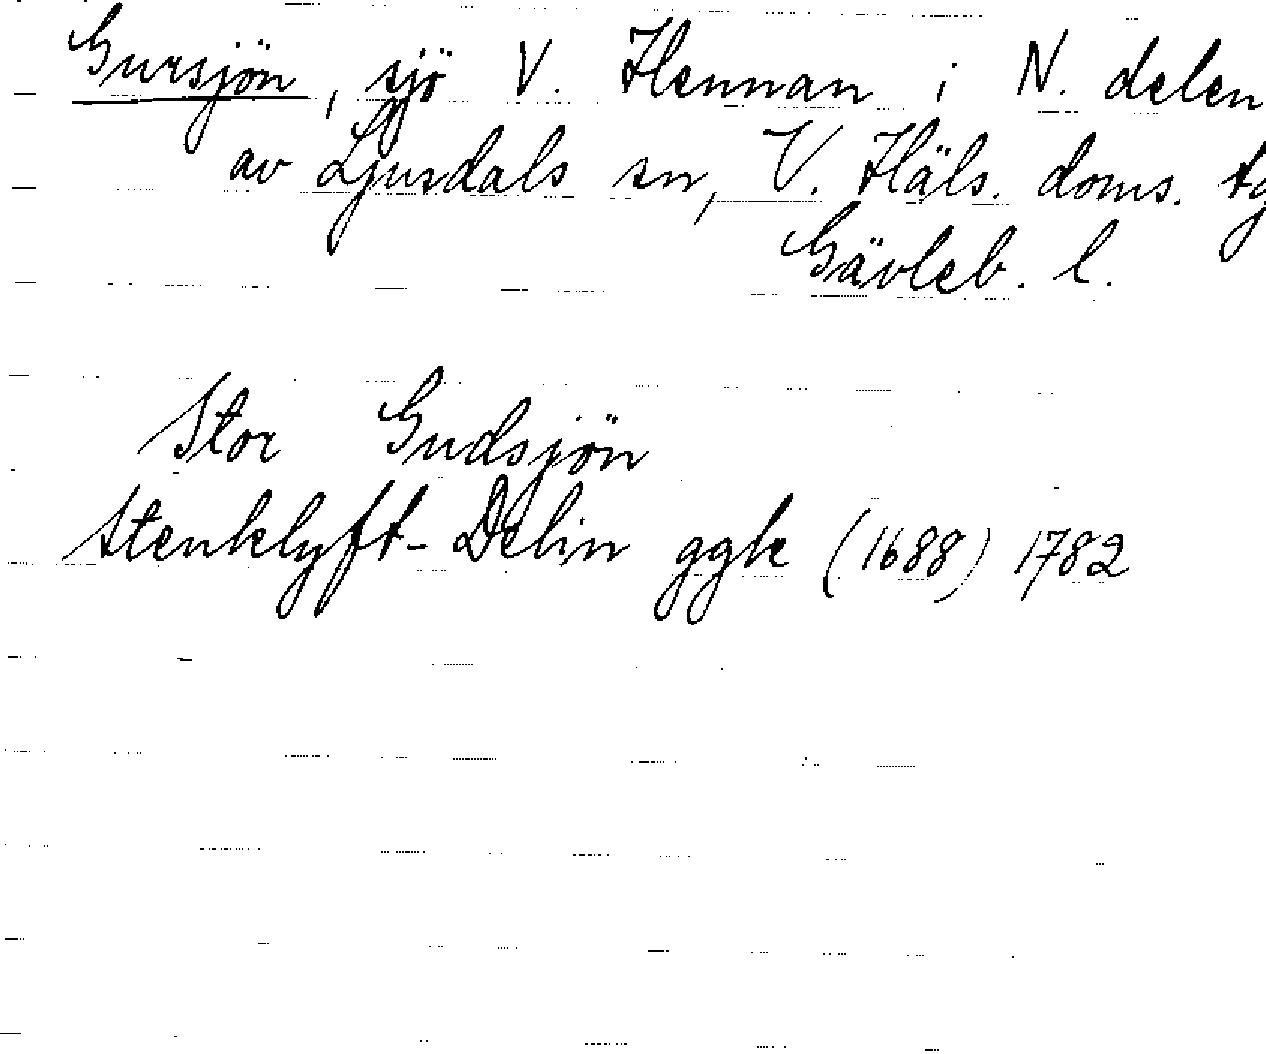 Gursjön, sjö V. Hennan i N. delen
av Ljusdals sn, V. Häls. doms. tg
Gävleb. l.
Stor Gudsjön
Stenklyft-Delin ggk (1688) 1782